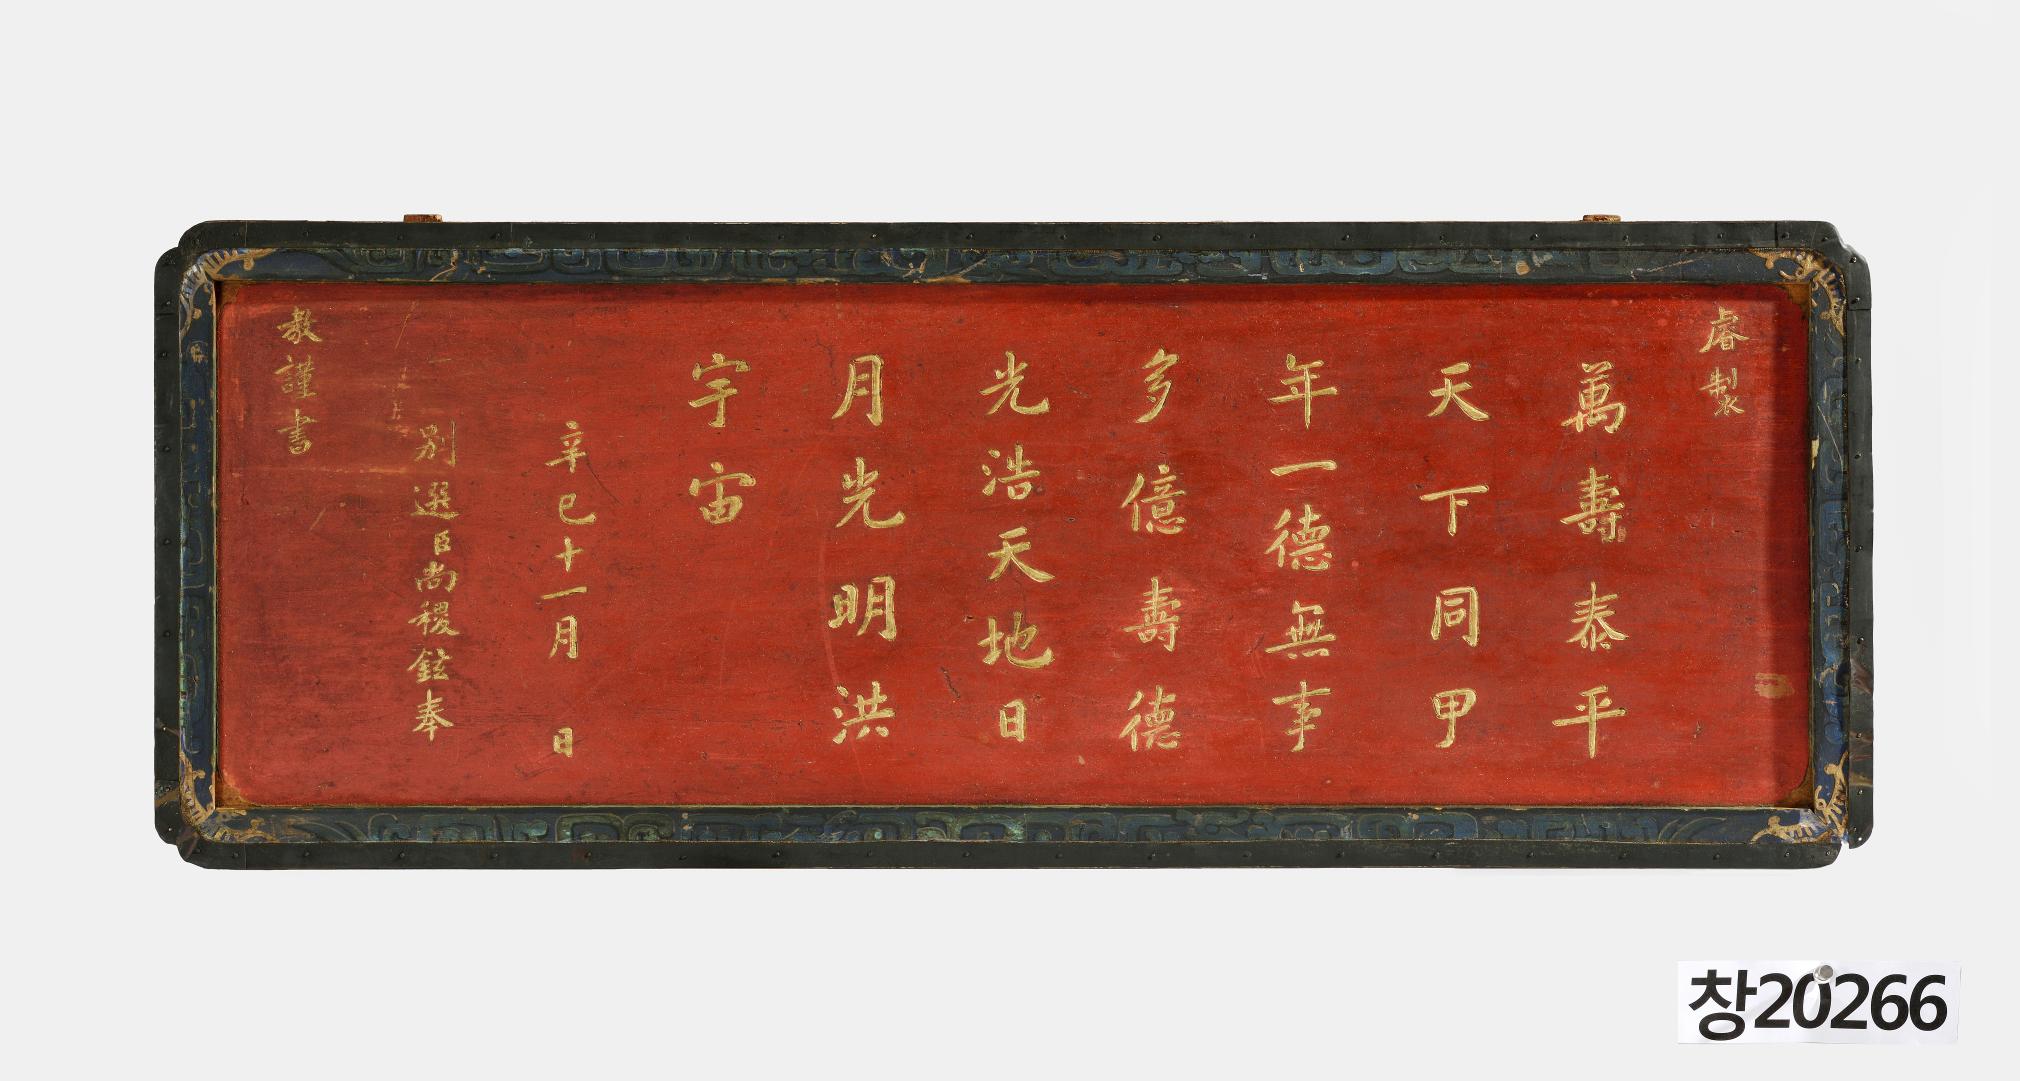 睿製
萬壽泰平
天下同甲
年一德無事
多億壽德
光浩天地日
月光明洪
宇宙
辛巳十一月 日
別選臣尚稷鉉奉
敎謹書
창20266